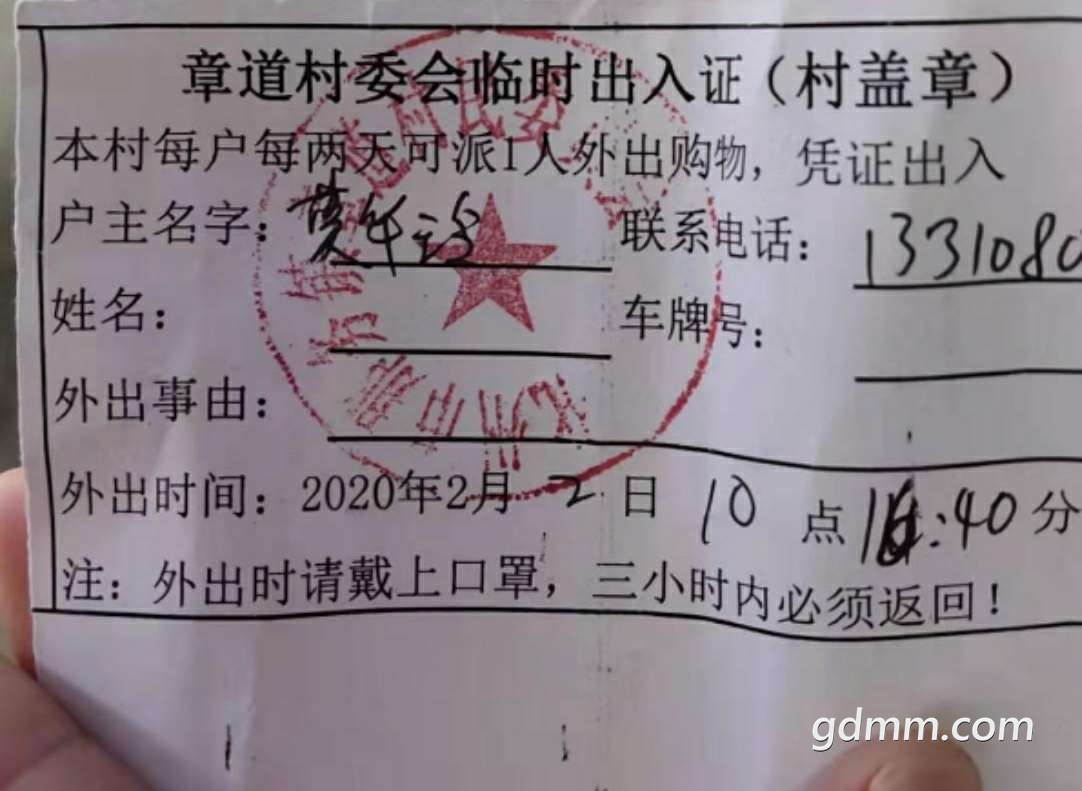 章道村委会临时出入证（村盖章）
本村每户每两天可派1人外出购物，凭证出入
户主名字： 联系电话：133108
姓名： 车牌号：
外出事由：
外出时间：2020年2月2日10点 :40分
注：外出时请戴上口罩，三小时内必须返回！
gdmm.com